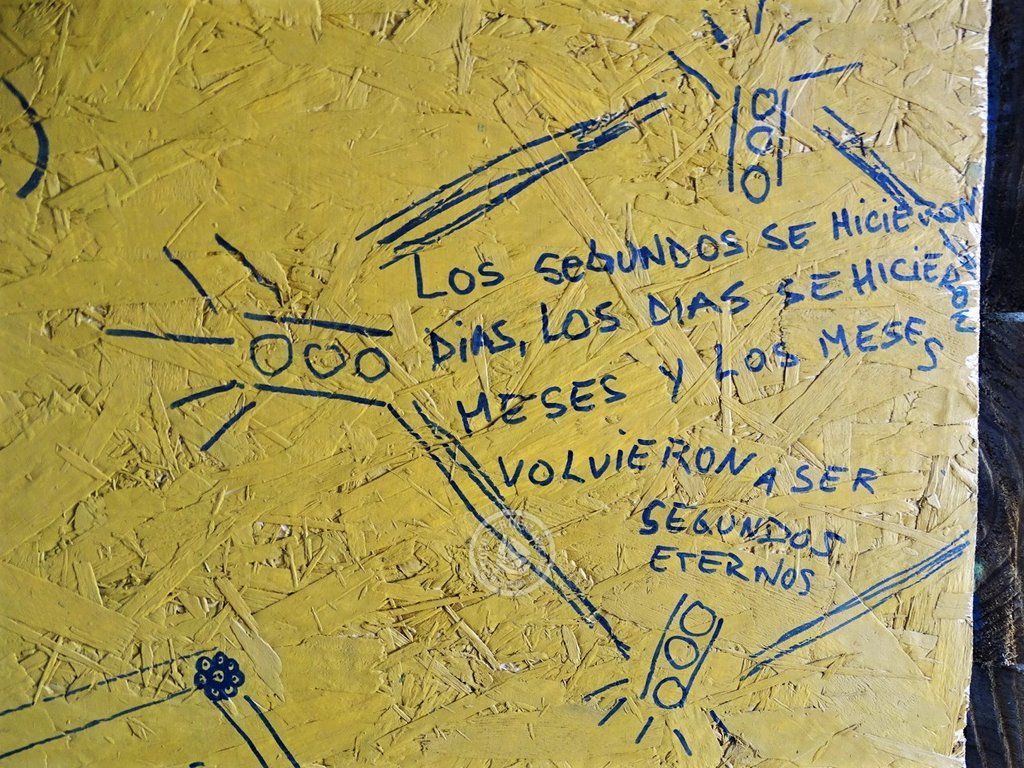 LOS SEGUNDOS SE HICIERON
DÍAS, LOS DIAS SE HICIERON
MESES Y LOS MESES
VOLVIERON A SER
SEGUNDOS
ETERNOS